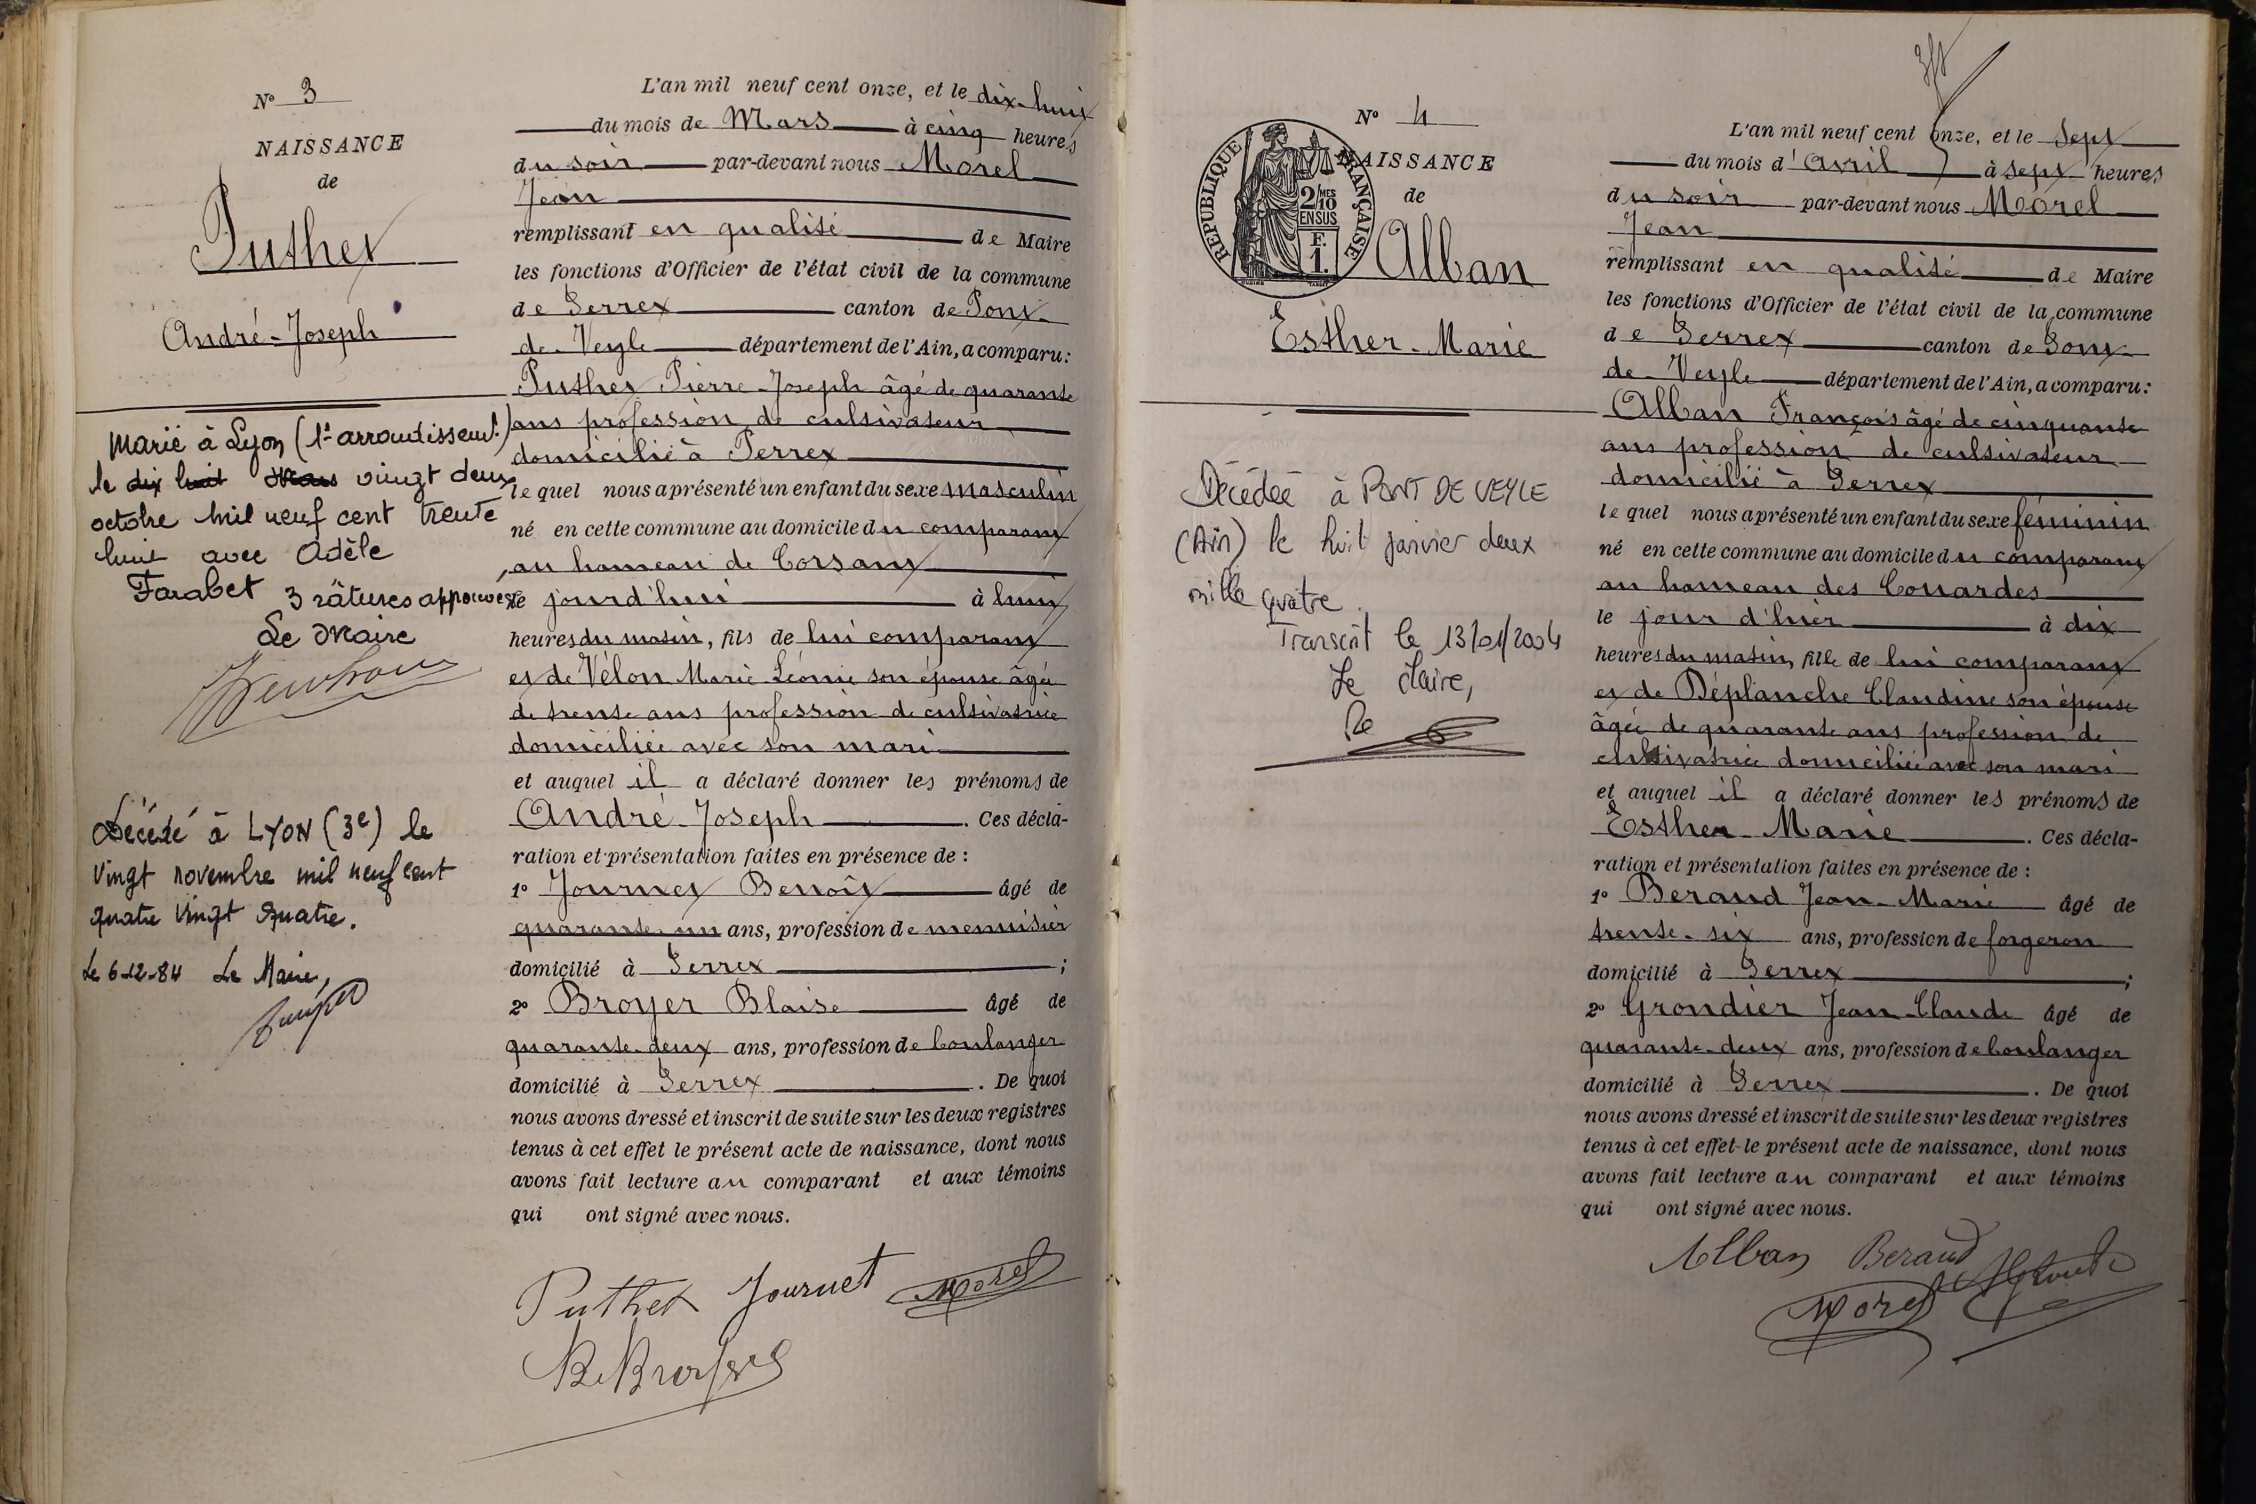 N° 3
NAISSANCE
de
Puthet
André-Joseph
Marié à Lyon (1er arrondissemt)
le dix huit Mars vingt deux
octobre mil neuf cent trente
huit avec Adèle
Farabet 3 râtures approuvées
Le Maire
Décédé à LYON (3e) le
vingt novembre mil neuf cent
quatre vingt quatre.
Le 6-12-84 Le Maire,
L'an mil neuf cent onze, et le dix-huit
du mois de Mars à cinq heures
du soir par-devant nous Morel
Jean
remplissant en qualité de Maire
les fonctions d'Officier de l'état civil de la commune
de Perrex canton de Pont-
de-Veyle département de l'Ain, a comparu:
Puthet Pierre-Joseph âgé de quarante
ans profession de cultivateur
domicilié à Perrex
lequel nous a présenté un enfant du sexe masculin
né en cette commune au domicile du comparant
au hameau de Corsant
le jourd'hui à huit
heures du matin, fils de lui comparant
et de Vélon Marie Léonie son épouse âgée
de trente ans profession de cultivatrice
domiciliée avec son mari
et auquel il a déclaré donner les prénoms de
André-Joseph. Ces décla-
ration et présentation faites en présence de :
1° Journet Benoît âgé de
quarante-un ans, profession de menuisier
domicilié à Perrex ;
2° Broyer Blaise âgé de
quarante-deux ans, profession de boulanger
domicilié à Perrex. De quoi
nous avons dressé et inscrit de suite sur les deux registres
tenus à cet effet le présent acte de naissance, dont nous
avons fait lecture au comparant et aux témoins
qui ont signé avec nous.
Puthet Journet Morel
B. Broyer
N° 4
NAISSANCE
de
RÉPUBLIQUE FRANÇAISE
2/10 MES
EN SUS
F.
1.
Alban
Esther-Marie
Décédée à PONT DE VEYLE
(Ain) le huit janvier deux
mille quatre.
Transcrit le 13/01/2004
Le Maire,
L'an mil neuf cent onze, et le sept
du mois d'avril à sept heures
du soir par-devant nous Morel
Jean
remplissant en qualité de Maire
les fonctions d'Officier de l'état civil de la commune
de Perrex canton de Pont-
de-Veyle département de l'Ain, a comparu:
Alban François âgé de cinquante
ans profession de cultivateur
domicilié à Perrex
lequel nous a présenté un enfant du sexe féminin
né en cette commune au domicile du comparant
au hameau des Couardes
le jour d'hier à dix
heures du matin, fille de lui comparant
et de Déplanche Claudine son épouse
âgée de quarante ans profession de
cultivatrice domiciliée avec son mari
et auquel il a déclaré donner les prénoms de
Esther-Marie. Ces décla-
ration et présentation faites en présence de :
1° Beraud Jean-Marie âgé de
trente-six ans, profession de forgeron
domicilié à Perrex ;
2° Grondier Jean-Claude âgé de
quarante-deux ans, profession de boulanger
domicilié à Perrex. De quoi
nous avons dressé et inscrit de suite sur les deux registres
tenus à cet effet le présent acte de naissance, dont nous
avons fait lecture au comparant et aux témoins
qui ont signé avec nous.
Alban Beraud
Morel